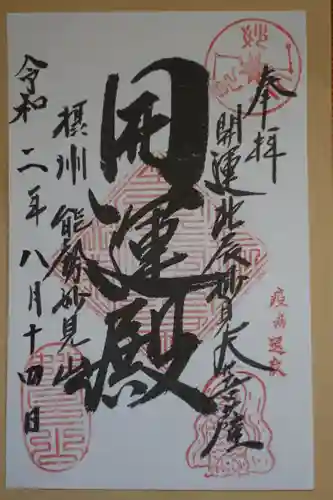 奉拝
開運北辰妙見大菩薩
疫病退散
開運殿
摂州 能勢妙見山
令和二年八月十四日